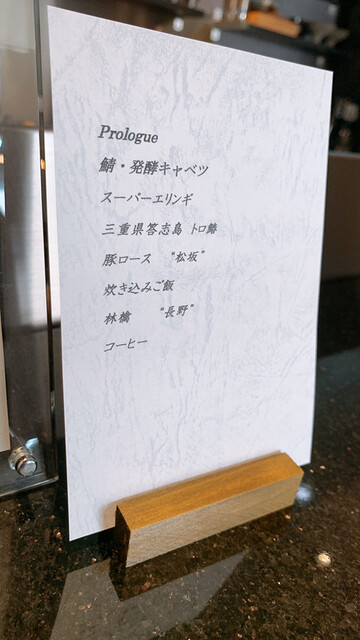 Prologue
鯖・発酵キャベツ
スーパーエリンギ
三重県答志島 トロ鰆
豚ロース “松坂”
炊き込みご飯
林檎 “長野”
コーヒー